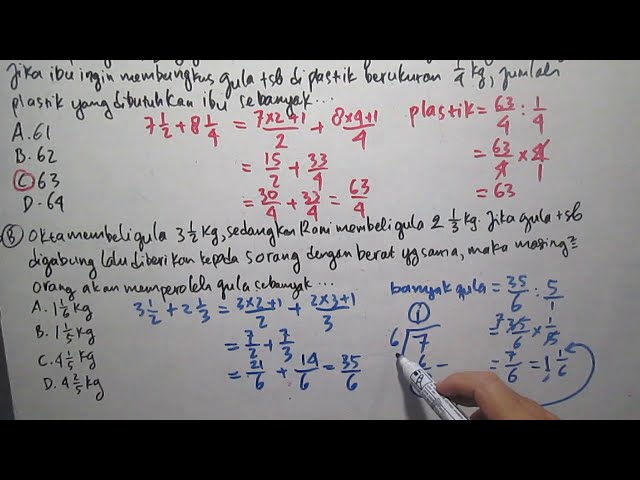 Jika ibu ingin membungkus gula tsb di plastik berukuran 1/4 kg, jumlah
plastik yang dibutuhkan ibu sebanyak...
A. 61
B. 62
C. 63
D. 64
7 1/2 + 8 1/4 = (7x2+1)/2 + (8x4+1)/4
= 15/2 + 33/4
= 30/4 + 33/4 = 63/4
plastik = 63/4 : 1/4
= 63/4 x 4/1
= 63
8 Okta membeli gula 3 1/2 kg, sedangkan Roni membeli gula 2 1/3 kg. Jika gula tsb
digabung lalu diberikan kepada 5 orang dengan berat yg sama, maka masing2
orang akan memperoleh gula sebanyak...
A. 1 1/6 kg
B. 1 1/5 kg
C. 4 1/5 kg
D. 4 2/5 kg
3 1/2 + 2 1/3 = (3x2+1)/2 + (2x3+1)/3
= 7/2 + 7/3
= 21/6 + 14/6 = 35/6
1
6 7
6 -
banyak gula = 35/6 : 5/1
= 7 35/6 x 1/5
= 7/6 = 1 1/6